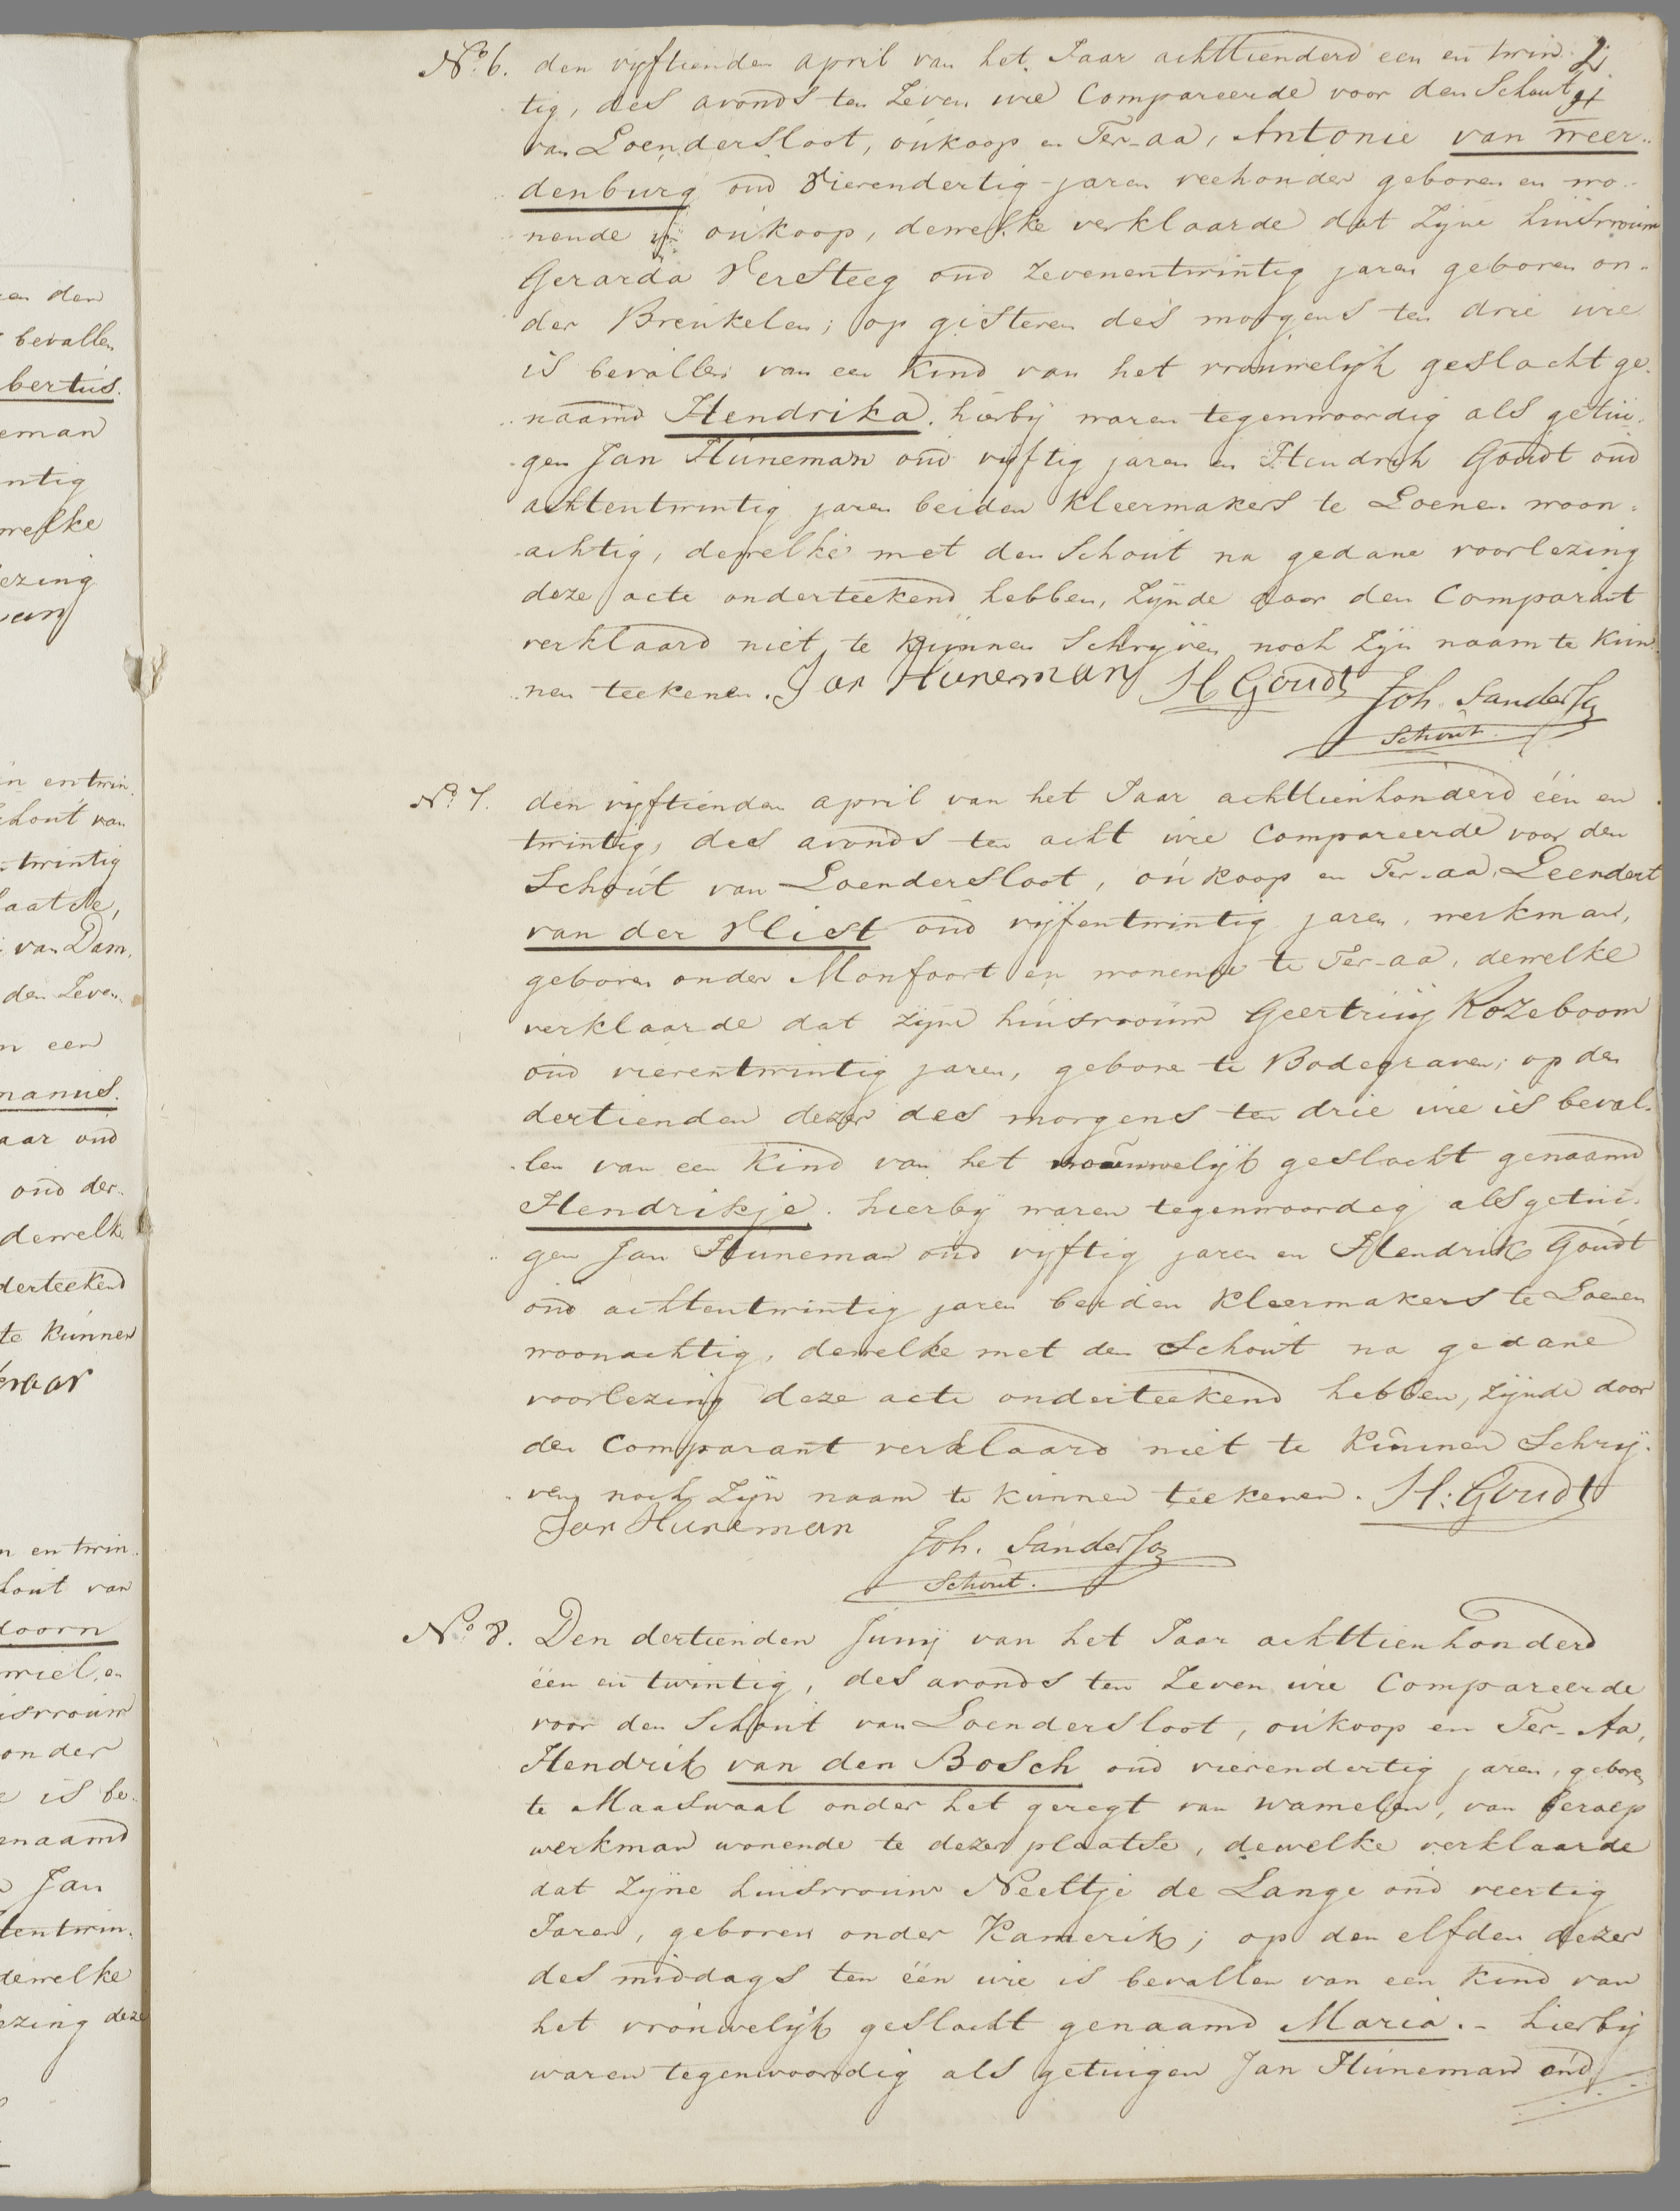 en den
bevallen
bertus.
eman
ntig
welke
ezing
van
n en twin.
chout van
twintig
laatse,
van Dam,
den Zeven
n een
manus.
aar oud
oud der..
dewelke
derteekend
te kunnen
n en twin.
hout van
doorn
wiel, en
isvrouw
onder
e is be.
naamd
Jan
tentwin.
dewelke
ezing deze
2
N.o 6. den vyftienden april van het Jaar achttienderd een en twin.
tig, des avonds ten Zeven ure Compareerde voor den Schout
van Loendersloot, oukoop en Ter-aa, Antonie van weer..
denburg oud Vierendertig jaren veehouder geboren en wo..
nende oukoop, dewelke verklaarde dat Zijne huisvrouw
Gerarda Versteeg oud Zevenentwintig jaren geboren on.
der Breukelen; op gisteren des morgens ten drie ure
is bevallen van een kind van het vrouwelyk geslacht ge.
naamd Hendrika. hierbij waren tegenwoordig als getui.
gen Jan Huneman oud vijftig jaren en Hendrik Goudt oud
achtentwintig jaren beiden kleermakers te Loenen woon.
achtig, dewelke met den Schout na gedane voorlezing
deze acte onderteekend hebben, Zijnde door den Comparant
verklaard niet te kunnen Schryven noch Zijn naam te kun
nen teekenen. Jan Huneman H Goudt Joh. Sanderson
Schout.
N.o 7. den vijftienden april van het Jaar achttienhonderd één en
twintig, des avonds ten acht ure Compareerde voor den
Schout van Loendersloot, oukoop en Ter-aa, Leendert
van der Vliet oud vijfentwintig jaren, werkman,
geboren onder Monfoort en wonende te Ter-aa, dewelke
verklaarde dat zijne huisvrouw Geertruij Rozeboom
oud vierentwintig jaren, gebore te Bodegraven; op den
dertienden dezer des morgens ten drie ure is beval.
len van een Kind van het vrouwelijk geslacht genaamd
Hendrikje. hierbij waren tegenwoordig als getui.
gen Jan Huneman oud vyftig jaren en Hendrik Goudt
oud achtentwintig jaren beiden kleermakers te Loenen
woonachtig, dewelke met den Schout na gedane
voorlezing deze acte onderteekend hebben, zijnde door
den Comparant verklaard niet te kunnen Schrij.
ven noch Zijn naam te kunnen teekenen. H: Goudt
Jan Huneman Joh. Sanderson
Schout.
N.o 8. Den dertienden Junij van het Jaar achttienhonderd
één en twintig, des avonds ten Zeven ure Compareerde
voor den Schout van Loendersloot, oukoop en Ter-Aa,
Hendrik van den Bosch oud vierendertig jaren, geboren
te Maaswaal onder het geregt van wamelen, van beroep
werkman wonende te dezer plaatse, dewelke verklaarde
dat Zijne huisvrouw Neeltje de Lange oud veertig
Jaren, geboren onder Kamerik; op den elfden dezer
des middags ten één ure is bevallen van een kind van
het vrouwelijk geslacht genaamd Maria. - hierbij
waren tegenwoordig als getuigen Jan Huneman oud